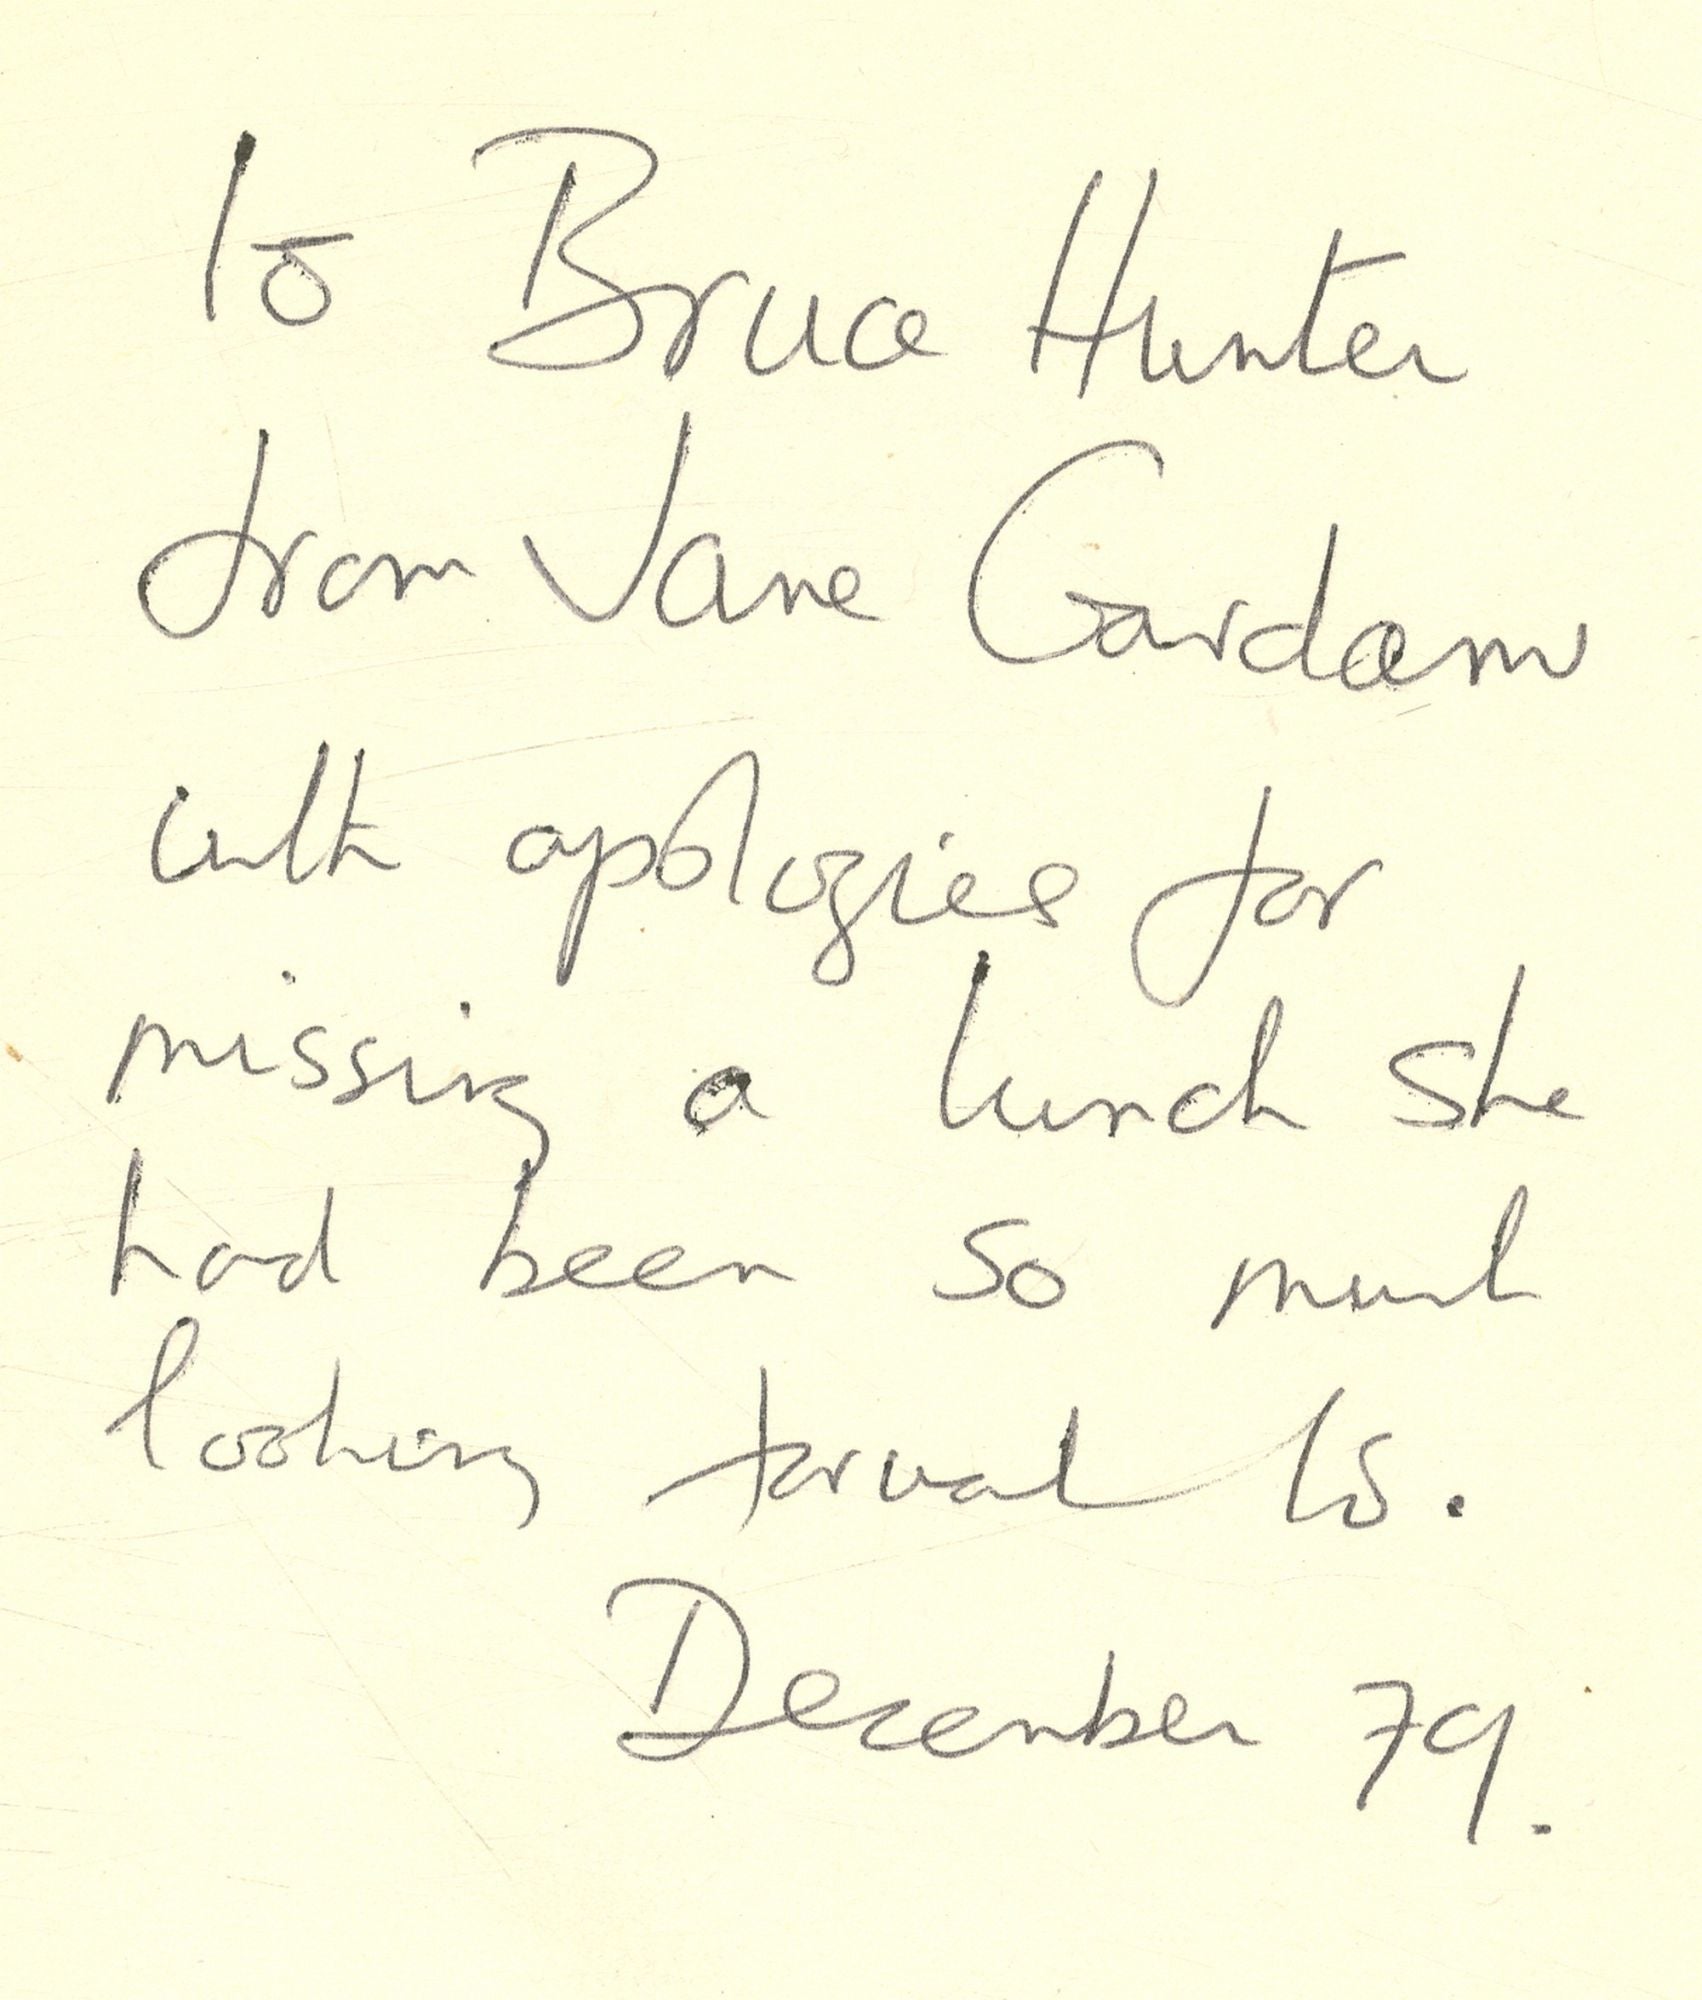 to Bruce Hunter
from Jane Gardam
with apologies for
missing a lunch she
had been so much
looking forward to.
December 79.